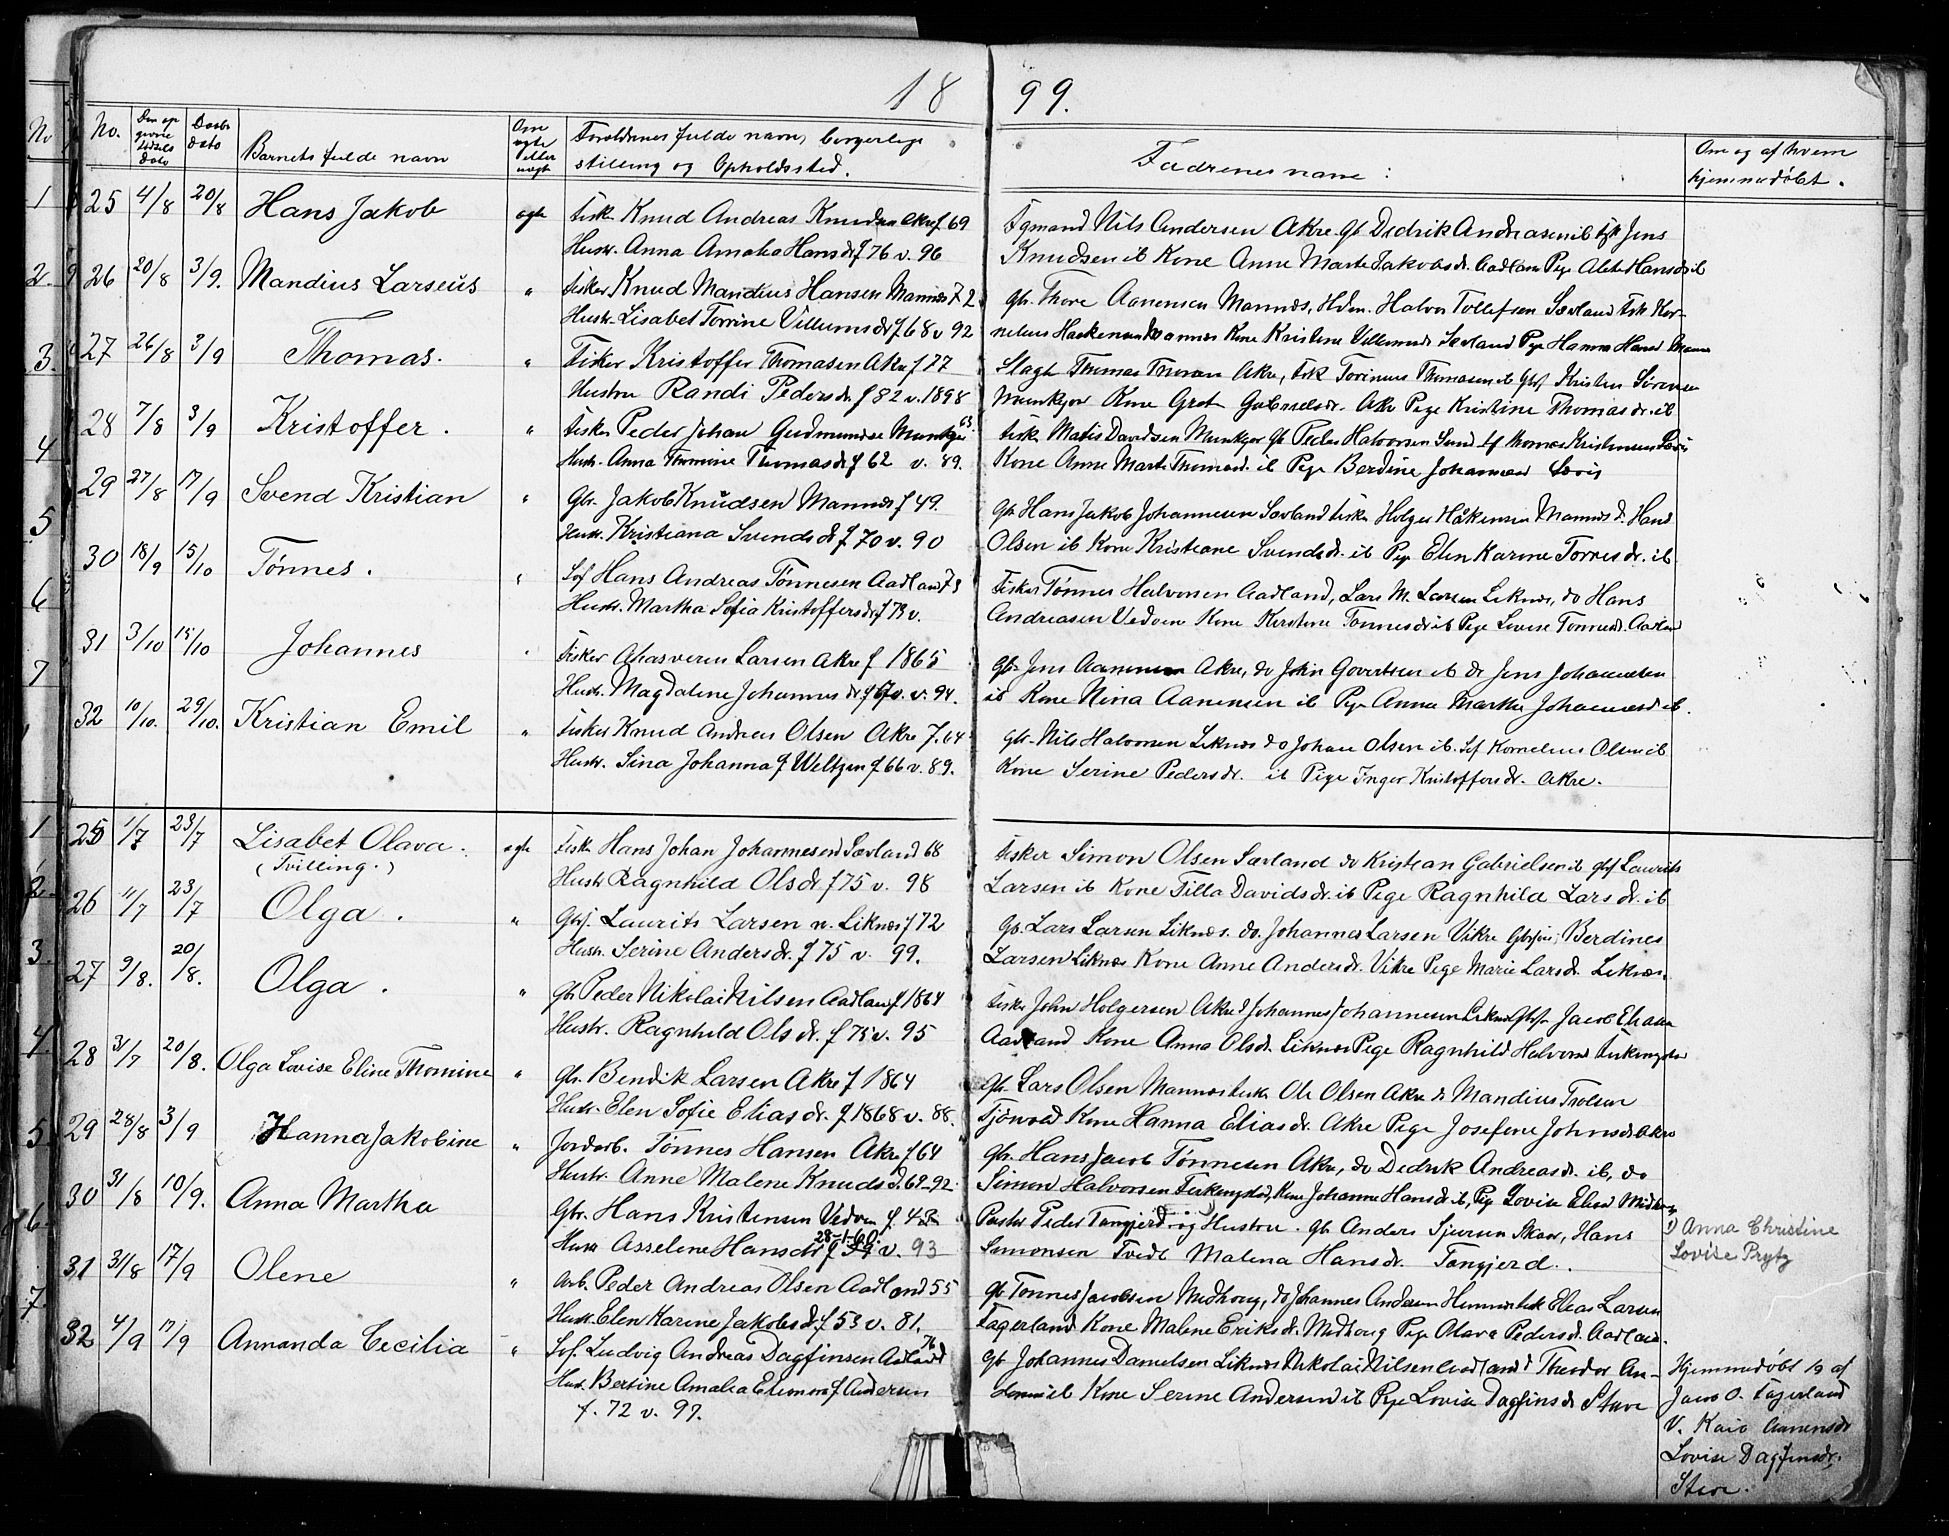 18 99.
No. Den op givne fødsels dato Daabs dato Barnets fulde navn Om ægte eller uægte Forældrenes fulde navn, borgerlige stilling og Opholdssted. Fadrenes navne : Om og af hvem hjemmedøbt.
25 4/8 20/8 Hans Jakob ægte Fisk. Knud Andreas Knudsen Akre f 69
Hustr. Anna Amalia Hansdr f 76 v. 96
Sgmand Nils Andersen Akre. Gb Dedrik Andreasen ib fisk Jens
Knudsen ib Kone Anne Marte Jakobsdr. Aadland Pige Alete Hansdr ib
26 20/8 3/9. Mandius Larseus " Fisker Knud Mandius Hansen Mannes 72
Hustr. Lisabet Torrine Villumsdr f 68 v 92
Gbr. Thore Aanensen Mannes, Halvor Tollefsen Sævland Fisk Kor-
nelius Haakensen Mannes Kone Kristene Villumsdr Sævland Pige Hanna Hansd
27 26/8 3/9 Thomas. " Fisker Kristoffer Thomasen Akre f 77
Hustru Randi Pedersdr. f 82 v. 1898
Thomas Akre, Fisk Torinus Thomasen ib Gbsf Kristen Sørensen
Munkjør Kone Gret Gabrielsdr. Akre Pige Kristine Thomasdr. ib
28 7/8 3/9 Kristoffer. " Fisker Peder Johan Gudmundsen Munkjør 63
Hustr. Anna Thomine Thomasdr f 62 v. 89.
Fisk. Matis Davidsen Munkjør Gb Peder Halvorsen Sund Thomas Kristensen
Kone Anne Marte Thomasd. ib Pige Berdine Johannesd
29 27/8 17/9 Svend Kristian " Gbr. Jakob Knudsen Mannes f 49.
Hustr. Kristiana Svendsdr f 70 v. 90
Gb Hans Jakob Johannesen Sævland Fisker Holger Håkensen Mannes do. Hans
Olsen ib Kone Kristiane Svendsdr. ib Pige Elen Karine Torresdr. ib
30 18/9 15/10 Tønnes. " Søf Hans Andreas Tønnesen Aadland 73
Hustr. Martha Sofia Kristoffersdr f 73 v.
Fisker Tønnes Halvorsen Aadland, Lars M. Larsen Liknes, do Hans
Andreasen Vedøen Kone Kirstine Tønnesdr ib Pige Lovise Tønnesd. Aadland
31 3/10 15/10 Johannes " Fisker Ahasverus Larsen Akre f 1865
Hustr. Magdalene Johannesdr f 70 v. 94.
Gb Jens Aanensen Akre, do John Govertsen ib do Jens Johannesen
ib Kone Nina Aanensen ib Pige Anna Martha Johannesd ib.
32 10/10. 29/10. Kristian Emil " Fisker Knud Andreas Olsen Akre f. 64
Hustr. Sina Johanna f Weltzen f 66 v. 89.
Gb. Nils Halvorsen Liknes do Johan Olsen ib. Søf Kornelius Olsen ib
Kone Serine Pedersdr. ib Pige Inger Kristoffersdr. Akre.
25 1/7 23/7 Lisabet Olava. ægte Fisk Hans Johan Johannesen Sævland 68
(Tvilling.)
Hustr Ragnhild Olsdr f 75 v. 98
Fisker Simon Olsen Sævland do Kristian Gabrielsen ib Gbsf Laurits
Larsen ib Kone Tilla Davidsdr. ib Pige Ragnhild Larsdr. ib
26 11/7 23/7 Olga. " Gbf. Laurits Larsen n. Liknes f 72
Hustr. Serine Andersdr. f 75 v. 99.
Gb. Lars Larsen Liknes. do. Johannes Larsen Vikre Berdines
Larsen Liknes Kone Anne Andersdr. Vikre Pige Marie Larsdr. Liknes.
27 9/8. 20/8. Olga. " Gb Peder Nikolai Nilsen Aadland f 1864
Hustr. Ragnhild Olsdr. f 75 v. 95
Fisker John Holgersen Akre do Johannes Johannesen Liknes Gbsf Jacob Eliasen
Aadland Kone Anna Olsdr. Liknes Pige Ragnhild Halvorsd Ferkingstad
28 31/7 20/8. Olga Lovise Eline Thomine " Gbr. Bendik Larsen Akre f 1864
Hustr. Elen Sofie Eliasdr. f 1868 v. 88.
Gb. Lars Olsen Mannes Fisk. Ole Olsen Akre do Mandius
Kone Hanna Eliasdr. Akre Pige Josefine Johnsdr. Akre
29 28/8 3/9 Hanna Jakobine " Jordarb. Tønnes Hansen Akre f 64
Hustr. Anne Malene Knudsd. 69-92.
Gb. Hans Jacob Tønnesen Akre, do Dedrik Andreasdr. ib, do
Simon Halvorsen Ferkingstad, Kone Johanne Hansdr ib, Pige Lovise Eliasd Midhoug
30 31/8 10/9. Anna Martha " Gbr. Hans Kristensen Vedøen f. 42
28-1-60.
Hustr Asselene Hansdr f 59 v. 93
Pastor Peder Tangjerd og Hustru 1). Gb. Anders Sjursen Skaar, Hans
Simonsen Tvedt Malena Hansdr. Tangjerd.
1) Anna Christine
Lovise Prytz
31 31/8 17/9 Olene " Arb. Peder Andreas Olsen Aadland 55
Hustr. Elen Karine Jakobsd. f 53 v. 81.
Gb Tønnes Jacobsen Midhoug, do Johannes Andersen Fisk Elias Larsen
Fagerland Kone Malene Eriksdr. Midhoug Pige Olava Pedersdr. Aadland.
32 4/9 17/9 Amanda Cecilia " Søf. Ludvig Andreas Dagfinsen Aadland 76
Hus. Bertine Amalia Elionora f Andersen
f. 72 v. 97.
Gb Johannes Danielsen Liknes Nikolai Nilsen Aadland do Theodor An-
dersen ib Kone Serine Andersen ib Pige Lovise Dagfinsdr Stave
Hjemmedøbt af
Jacob O. Fagerland
V. Aanensdr
Lovise Dagfinsdr.
Stave.